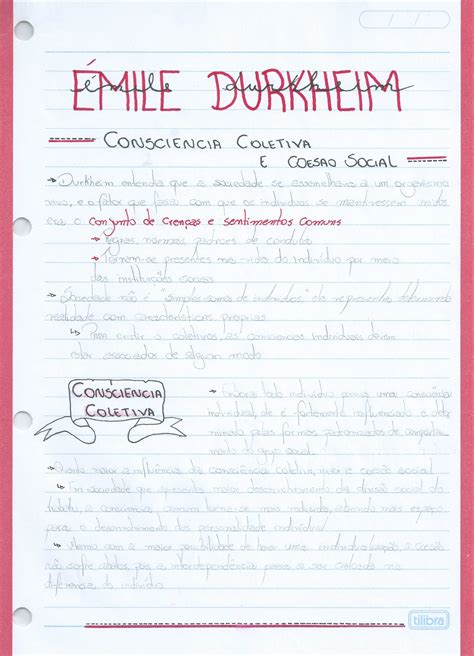 ÉMILE DURKHEIM
émile durkheim
CONSCIENCIA COLETIVA
E COESAO SOCIAL
→ Durkheim entendia que a sociedade se assemelhava a um organismo
vivo, e o fator que fazia com que os individuos se mantivessem unidos
era o conjunto de crenças e sentimentos comuns
→ regras, normas, padroes de conduta
→ Tornam-se presentes nas vidas do individuo por meio
das instituições sociais
→ Sociedade não é "simples soma de individuos", ela representa determinada
realidade com caracteristicas proprias
↳ Para existir o coletivo, as consciencias individuais devem
estar associadas de algum modo
CONSCIENCIA
COLETIVA
→ Embora todo individuo possua uma consciência
individual, ele é fortemente influenciado e deter
minado pelas formas padronizadas de comporta
mento do grupo social.
→ Quanto maior a influência da consciência coletiva, maior a coesão social
→ Em sociedade que apresenta maior desenvolvimento da divisão social do
trabalho, a consciencia comum torna-se mais reduzida, abrindo mais espaço
para o desenvolvimento da personalidade individual
→ Mesmo com a maior possibilidade de haver uma individualização, a coesão
não sofre abalos, pois as interdependências passa a ser calcada na
diferença do individuo
tilibra